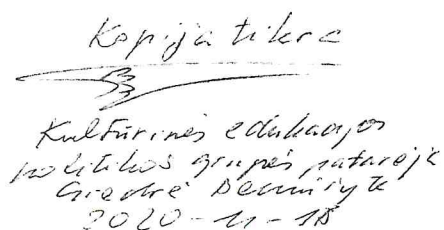 Kopija tikra
Kultūrinės edukacijos
politikos grupės patarėja
Giedrė
2020-11-18